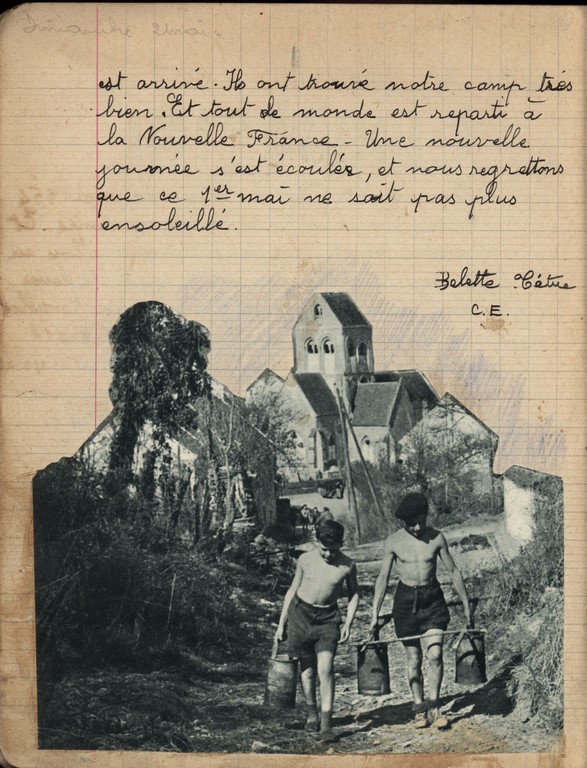 Dimanche 2 mai.
est arrivé. Ils ont trouvé notre camp très
bien. Et tout le monde est reparti à
la Nouvelle France - Une nouvelle
journée s'est écoulée, et nous regrettons
que ce 1er mai ne soit pas plus
ensoleillé.
Belette
C.E.